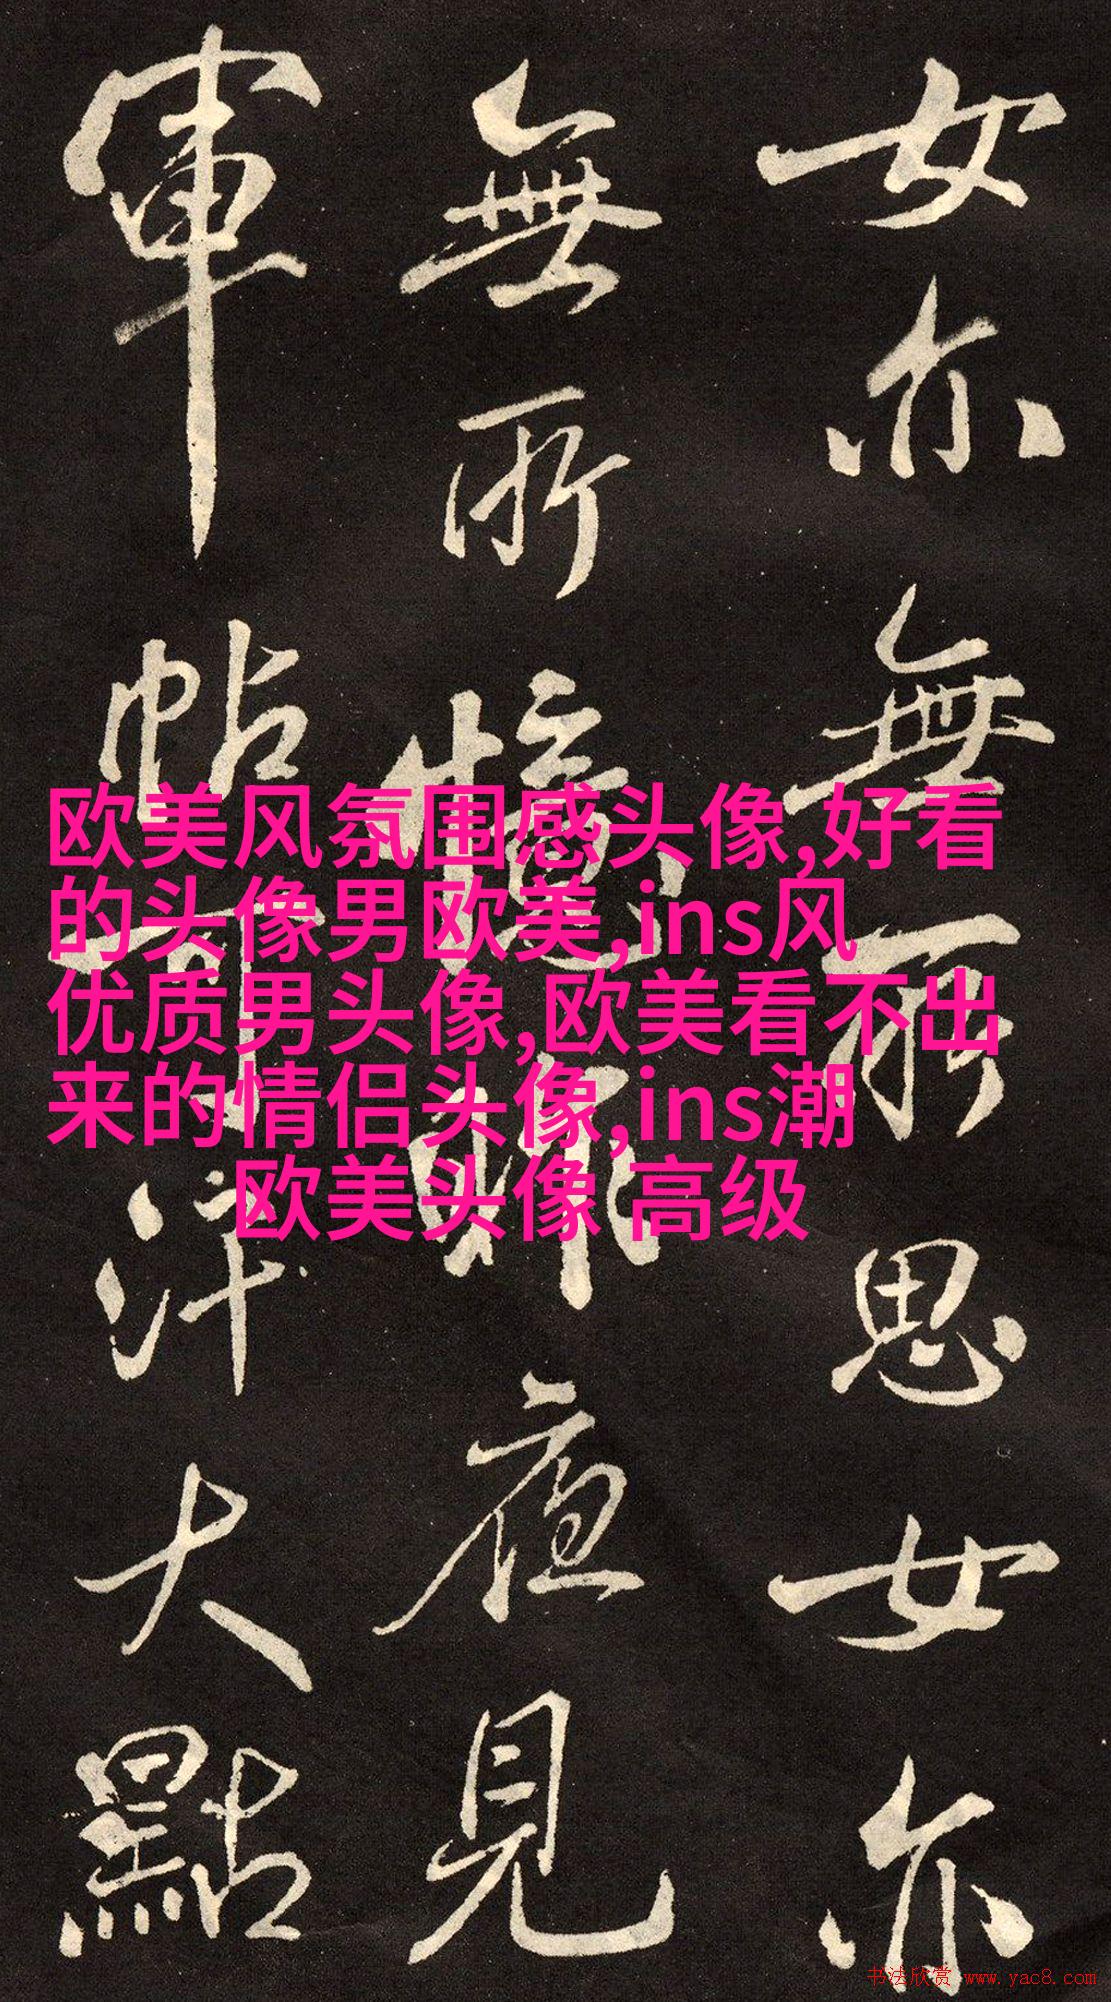 女亦無所思女亦
無所憶昨夜見
軍帖可汗大點
欧美风氛围感头像,好看
的头像男欧美,ins风
优质男头像,欧美看不出
来的情侣头像,ins潮
欧美头像 高级
书法欣赏 www.yac8.com